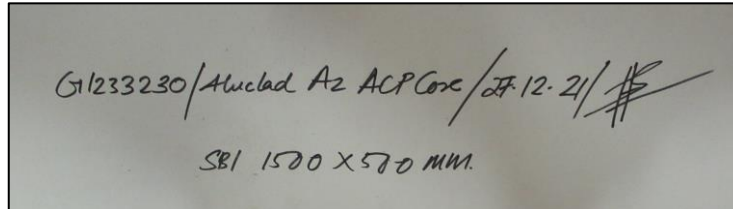 G1233230/Aluclad A2 ACP Core/27.12.21/
SBI 1500 X 500 mm.